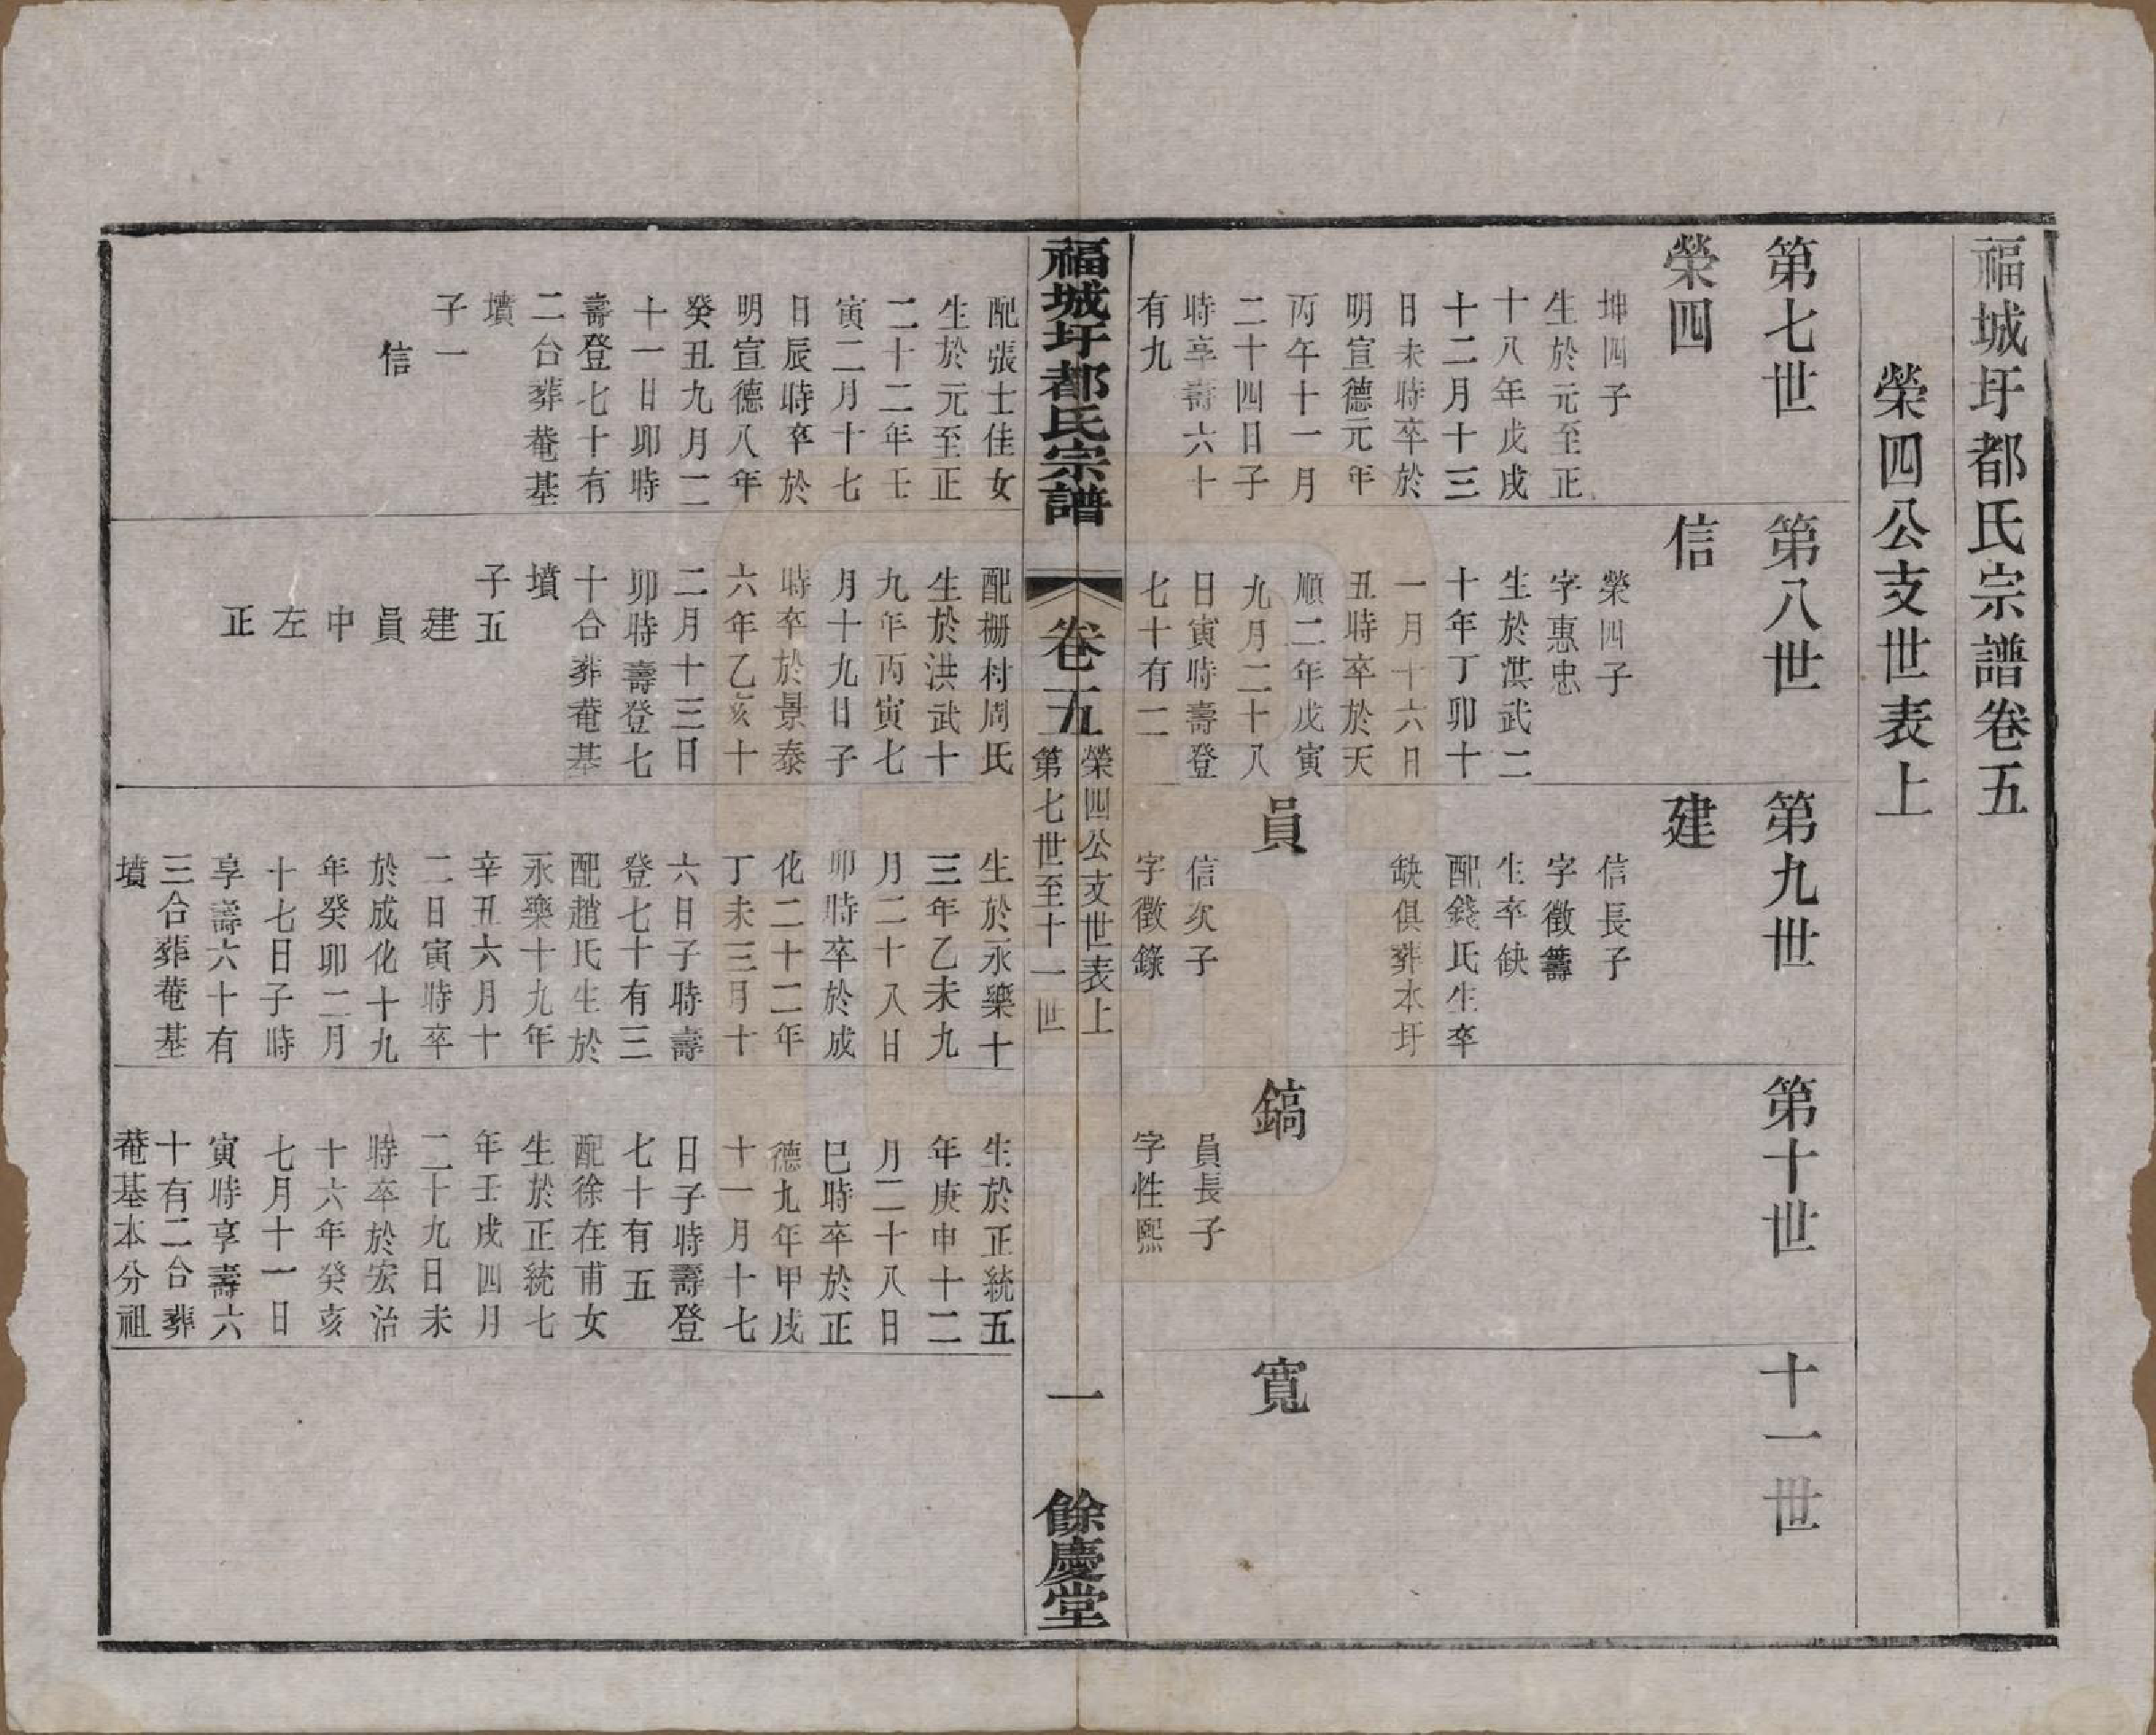 福城圩都氏宗譜卷五
榮四公支世表上
第七世
第八世
第九世
第十世
十一世
榮四
坤四子
生於元至正
十八年戊戌
十二月十三
日未時卒於
明宣德元年
丙午十一月
二十四日子
時享壽六十
有九
信
榮四子
字惠忠
生於洪武二
十年丁卯十
一月十六日
丑時卒於天
順二年戊寅
九月二十八
日寅時壽登
七十有二
建
信長子
字徵籌
生卒缺
配錢氏生卒
缺俱葬本圩
員
信次子
字徵錄
鎬
員長子
字性熙
寬
福城圩都氏宗譜
卷五
榮四公支世表上
第七世至十一世
一
餘慶堂
配張士佳女
生於元至正
二十二年壬
寅二月十七
日辰時卒於
明宣德八年
癸丑九月二
十一日卯時
壽登七十有
二合葬菴基
墳
子一
信
配柵村周氏
生於洪武十
九年丙寅七
月十九日子
時卒於景泰
六年乙亥十
二月十三日
卯時壽登七
十合葬菴基
墳
子五
建
員
中
左
正
生於永樂十
三年乙未九
月二十八日
卯時卒於成
化二十二年
丁未三月十
六日子時壽
登七十有三
配趙氏生於
永樂十九年
辛丑六月十
二日寅時卒
於成化十九
年癸卯二月
十七日子時
享壽六十有
三合葬菴基
墳
生於正統五
年庚申十二
月二十八日
巳時卒於正
德九年甲戌
十一月十七
日子時壽登
七十有五
配徐在甫女
生於正統七
年壬戌四月
二十九日未
時卒於宏治
十六年癸亥
七月十一日
寅時享壽六
十有二合葬
菴基本分祖